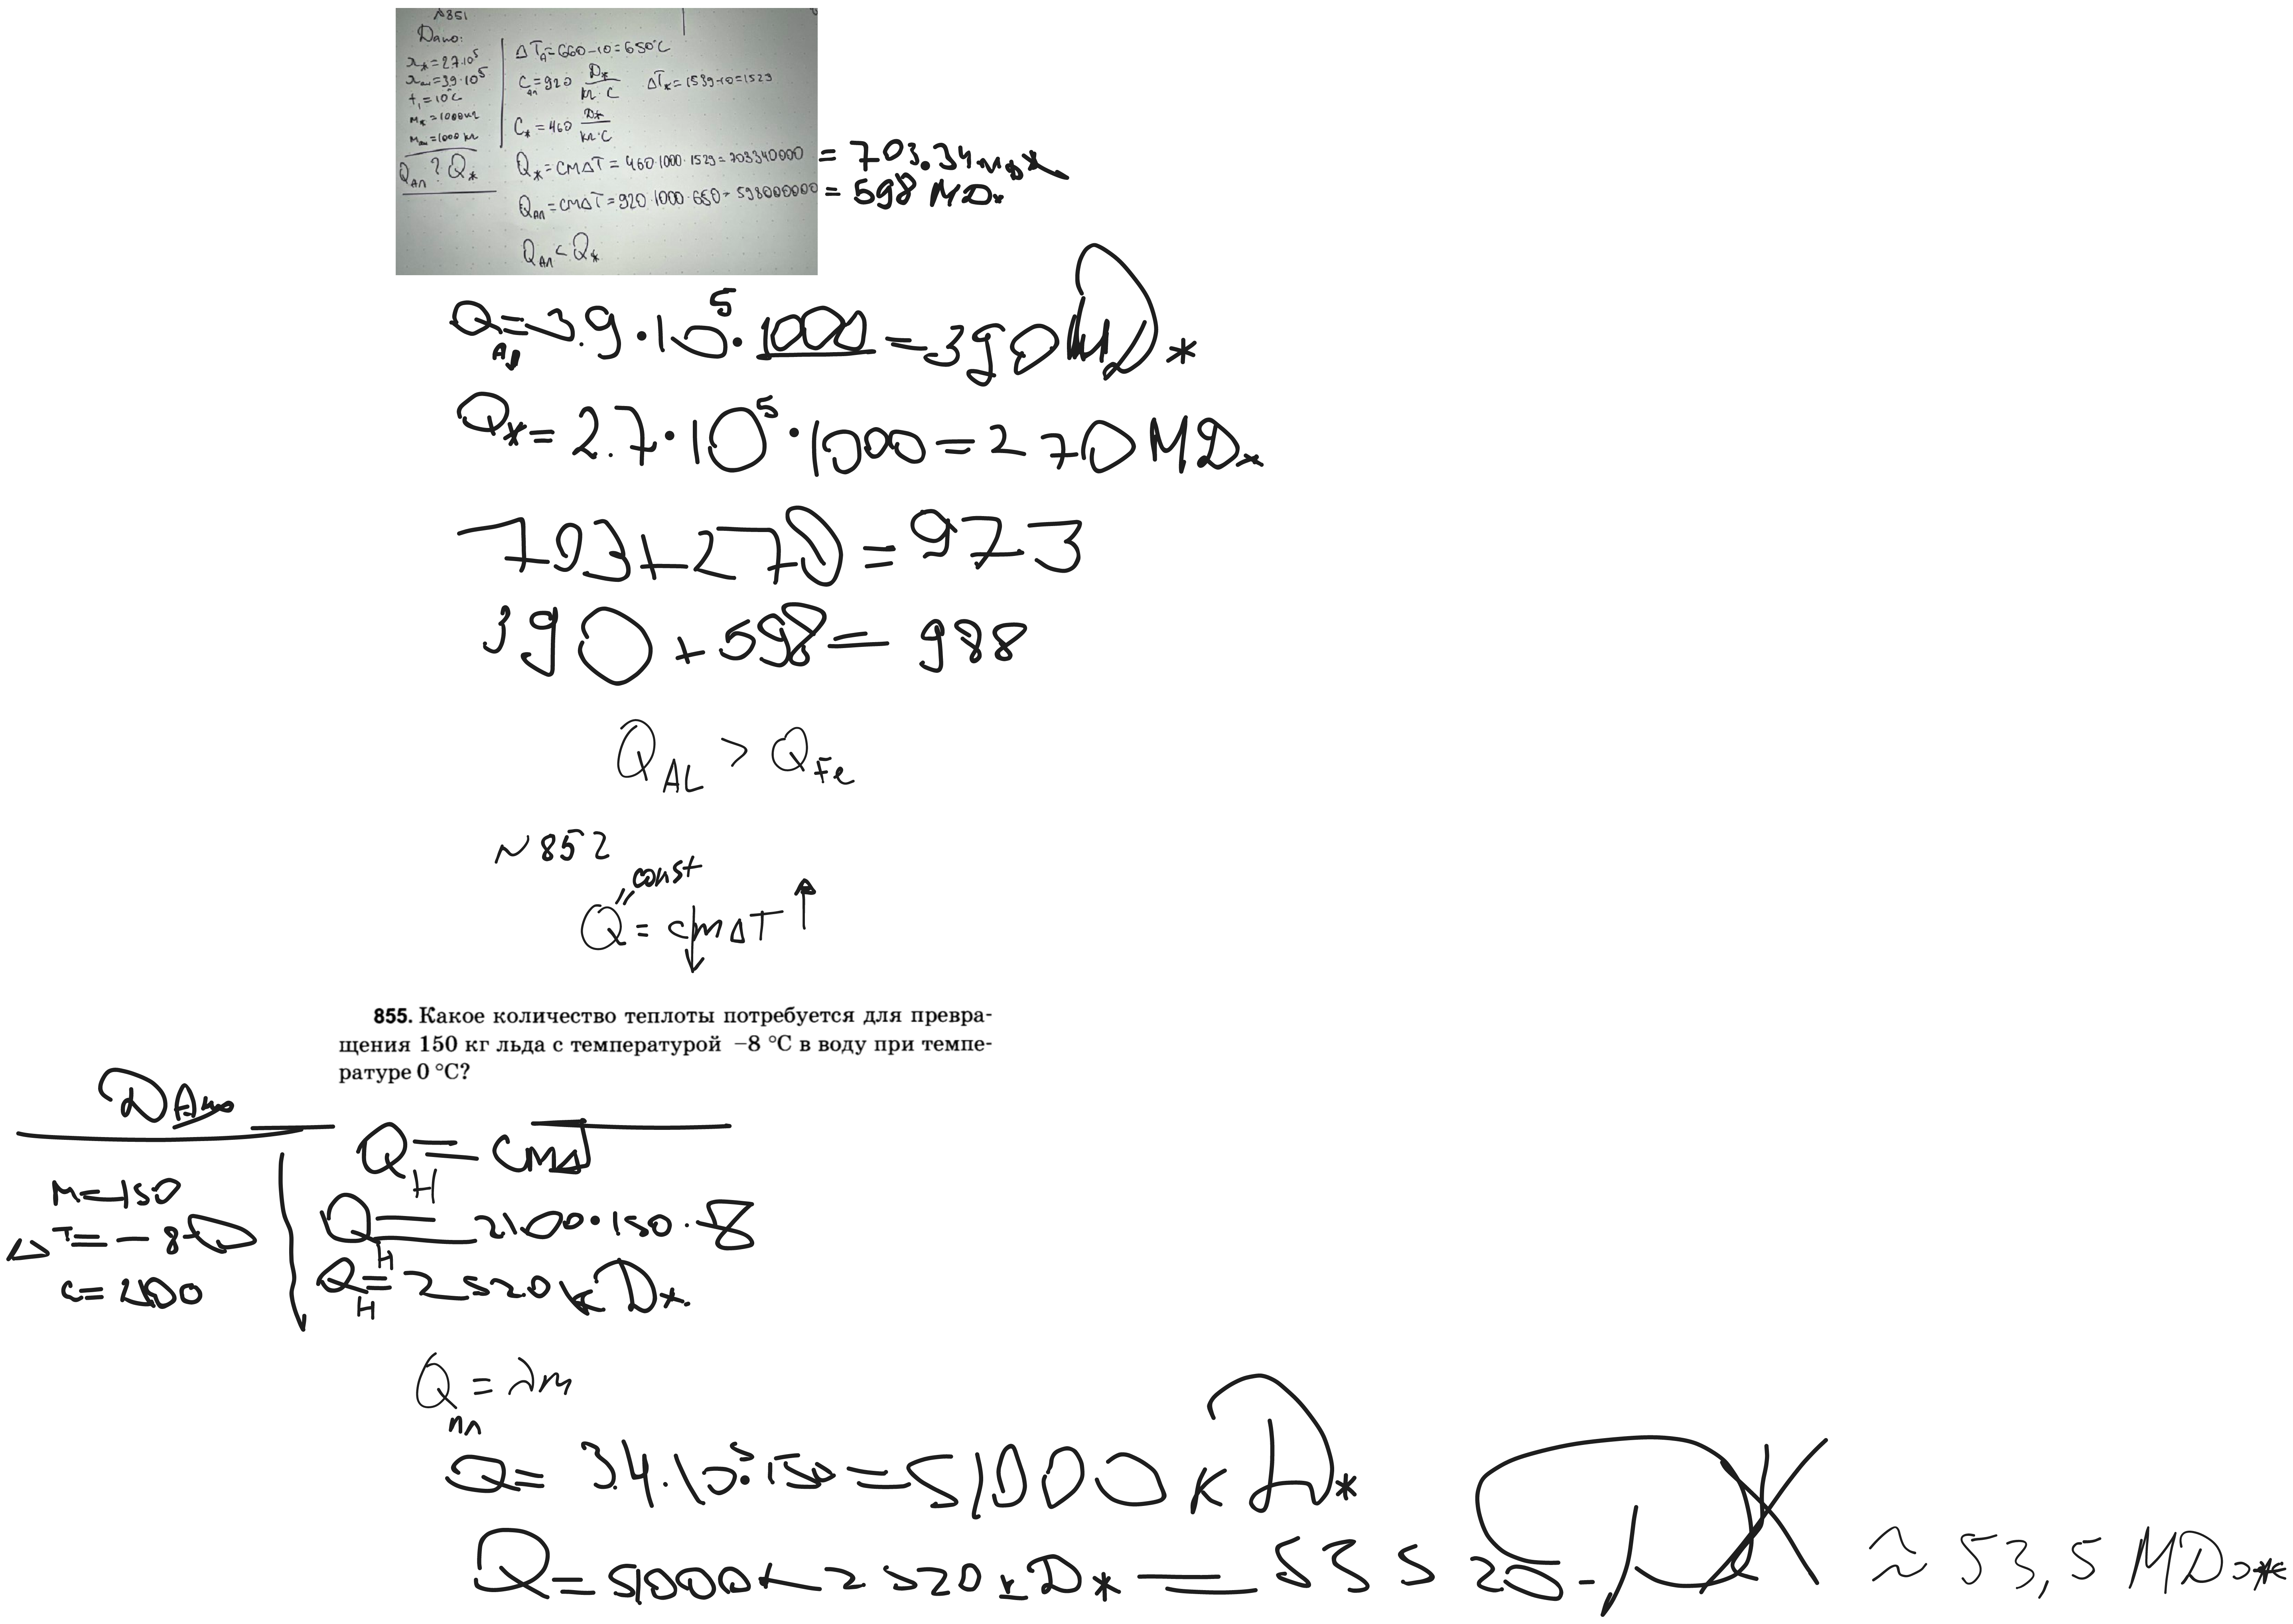 №851
Дано:
λж=2.7·10⁵
λал=3.9·10⁵
t₁=10°C
mж=1000кг
mал=1000 кг
Qал ? Qж
ΔTА=660-10=650°C
Cал=920 Дж/кг·C ΔTж=1539-10=1529
Cж=460 Дж/кг·C
Qж=cmΔT=460·1000·1529=703340000 =703.34мДж
Qал=cmΔT=920·1000·650=598000000 =598 МДж
Qал<Qж
Qал=3.9·10⁵·1000=390МДж
Qж=2.7·10⁵·1000=270МДж
703+270=973
390+598=988
QAL > QFe
№852
Q = cmΔT ↑
const
855. Какое количество теплоты потребуется для превра-
щения 150 кг льда с температурой −8 °C в воду при темпе-
ратуре 0 °C?
Дано
m=150
ΔT=-8-0
c=2100
QН=cmΔT
QН=2100·150·8
QН=2520кДж
Qпл=λm
Q=3.4·10⁵·150=51000кДж
Q=51000+2520кДж=53520-ДЖ ≈ 53,5 МДж